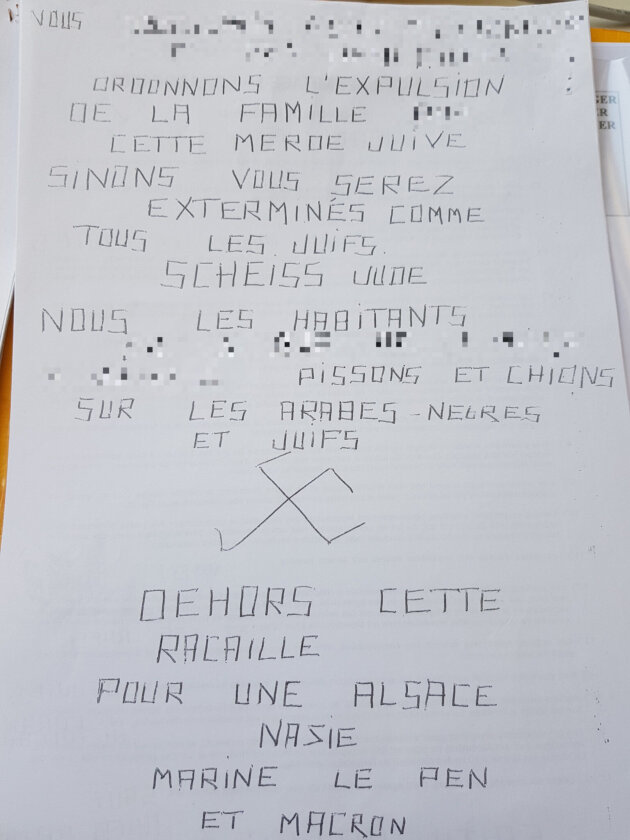 VOUS
ORDONNONS L'EXPULSION
DE LA FAMILLE
CETTE MERDE JUIVE
SINONS VOUS SEREZ
EXTERMINÉS COMME
TOUS LES JUIFS.
SCHEISS JUDE
NOUS LES HABITANTS
PISSONS ET CHIONS
SUR LES ARABES-NEGRES
ET JUIFS
DEHORS CETTE
RACAILLE
POUR UNE ALSACE
NASIE
MARINE LE PEN
ET MACRON